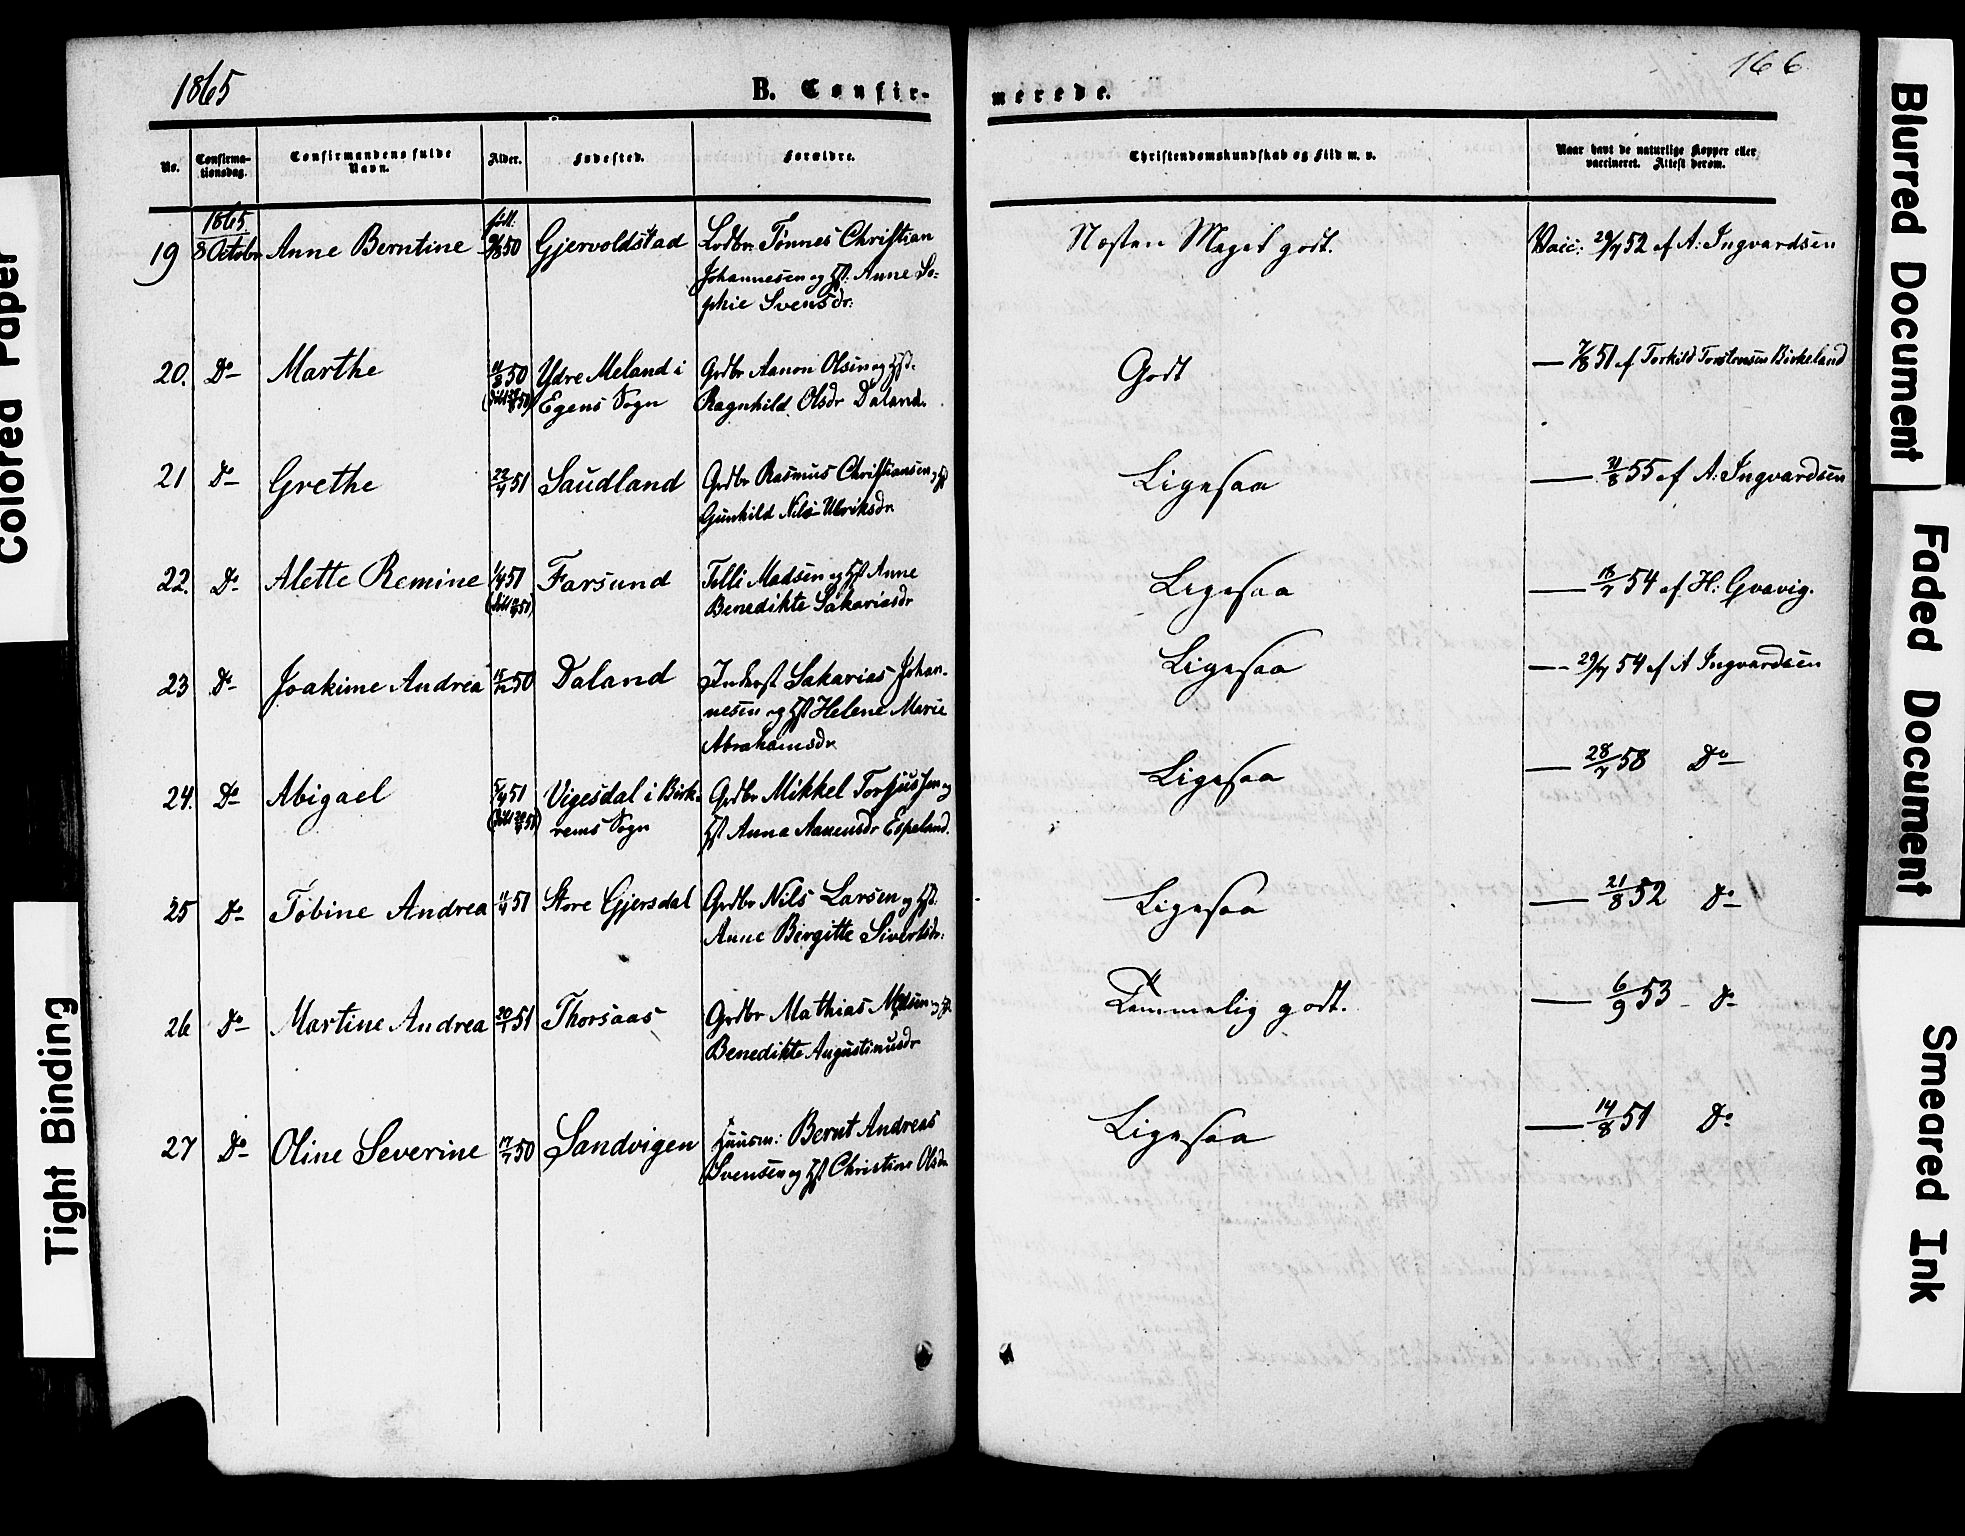 1865
B. Confir-
merede.
166
No.
Confirma-
tionsdag.
Confirmandens fulde
Navn.
Alder.
Fødested.
Forældre.
Christendomskundskab og Flid m. v.
Naar havt de naturlige Kopper eller
vaccineret. Attest derom.
1865
19 8 Octobr Anne Berntine 50 Gjervoldstad Lodbr. Tønnes Christian
Johannesen og Hst. Anne So-
phie Svensdr.
Næsten Meget godt.
Vacc: 29/7 52 af A: Ingvardsen
20. Do Marthe 50 Ydre Meland i Grdbr Aanon Olsen og Hst.
Egens Sogn Ragnhild Olsdr Daland.
Godt
— 7/8 51 af Torkild Torstensen Birkeland
21 Do Grethe 22/4 51 Saudland Grdbr Rasmus Christiansen og Hst
Gunhild Nils-Ulriksdr
Ligesaa
— 55 af A: Ingvardsen
22. Do Alette Remine 51 Farsund Telli Madsen og Hst Anne
Benedikte Sakariasdr
Ligesaa
— 54 af H: Gvavig.
23 Do Joakime Andrea 50 Daland Inderst Sakarias Johan-
nesen og Hst Helene Marie
Abrahamsdr
Ligesaa
— 29/7 54 af A Ingvardsen
24. Do Abigael 51 Vigesdal i Birk- Grdbr Mikkel Torjussen og
rems Sogn Hst Anna Aanensdr Espeland.
Ligesaa
— 28/7 58 Do
25 Do Tobine Andrea 51 Store Gjersdal Grdbr Nils Larsen og Hst.
Anne Bergitte Sivertsdr.
Ligesaa
— 21/8 52 Do
26 Do Martine Andrea 20/1 51 Thorsaas Grdbr Mathias Madsen og Hst
Benedikte Augustinusdr
Temmelig godt.
— 6/9 53 Do
27 Do Oline Severine 17/7 50 Sandvigen Huusm: Bernt Andreas
Svensen og Hst Christine Olsdr
Ligesaa
— 14/8 51 Do
Colored Paper
Tight Binding
Blurred Document
Faded Document
Smeared Ink